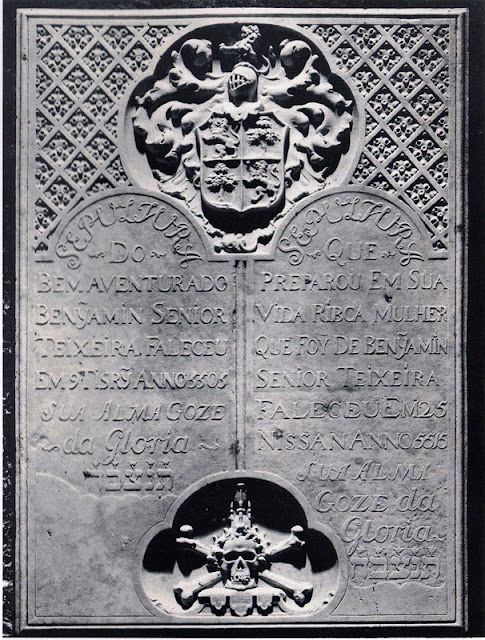 SEPULTURA
DO
BEM AVENTURADO
BENȲAMIN SENIOR
TEIXEIRA, FALECEU
EM 9 TISRȲ ANNO 5505
SUA ALMA GOZE
da Gloria
תנצבה
SEPULTURA
QUE
PREPAROU EM SUA
VIDA RIBCA MULHER
QUE FOY DE BENȲAMIN
SENIOR TEIXEIRA
FALECEU EM 25
NISSAN ANNO 5515
SUA ALMA
GOZE da
Gloria
תנצבה